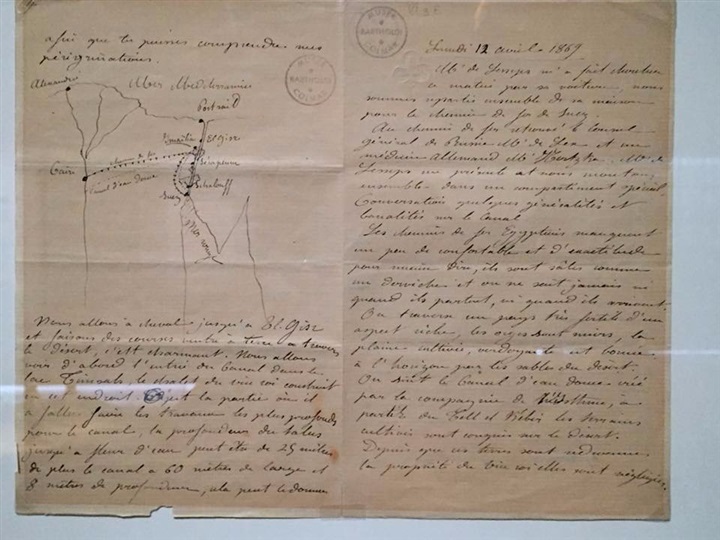 afin que tu puisses comprendre mes
pérégrinations.
MUSÉE
BARTHOLDI
COLMAR
Alexandrie
Mer Méditerranée
Port Saïd
Ismailia
El Gisr
Caire
chemin de fer
Canal d'eau douce
Serapeum
Chalouff
Suez
Mer rouge
Nous allons à cheval jusqu'à El Gisr
et faisons des courses ventre à terre à travers
le désert, c'est charmant. Nous allons
voir d'abord l'entrée du Canal dans le
lac Timsah, le chalet du vice roi construit
en cet endroit. C'est la partie où il
a fallu faire les travaux les plus profonds
pour le canal, la profondeur du sable
jusqu'à fleur d'eau peut être de 25 mètres
de plus le canal a 60 mètres de large et
8 mètres de profondeur, cela peut te donner
MUSÉE
BARTHOLDI
COLMAR
Lundi 12 avril 1869
Mr de Lesseps m'a fait chercher
ce matin par sa voiture, nous
sommes partis ensemble de sa maison
pour le chemin de fer de Suez
Au chemin de fer retrouvé le Consul
général de Russie Mr de Lex et un
médecin Allemand Mr. Mr de
Lesseps me présente et nous montons
ensemble dans un compartiment spécial.
Conversation quelques généralités et
banalités sur le Canal.
Les chemins de fer Egyptiens manquent
un peu de confortable et d'exactitude
pour mieux dire, ils sont sales comme
un derviche et on ne sait jamais ni
quand ils partent, ni quand ils arrivent.
On traverse un pays très fertile d'un
aspect riche, les orges sont mûrs, la
plaine cultivée, verdoyante est bornée
à l'horizon par les sables du désert.
On suit le Canal d'eau douce créé
par la compagnie de l'isthme, à
partir du Tell el Kébir les terrains
cultivés sont conquis sur le désert.
Depuis que ces terres sont redevenues
la propriété du Vice roi elles sont négligées.